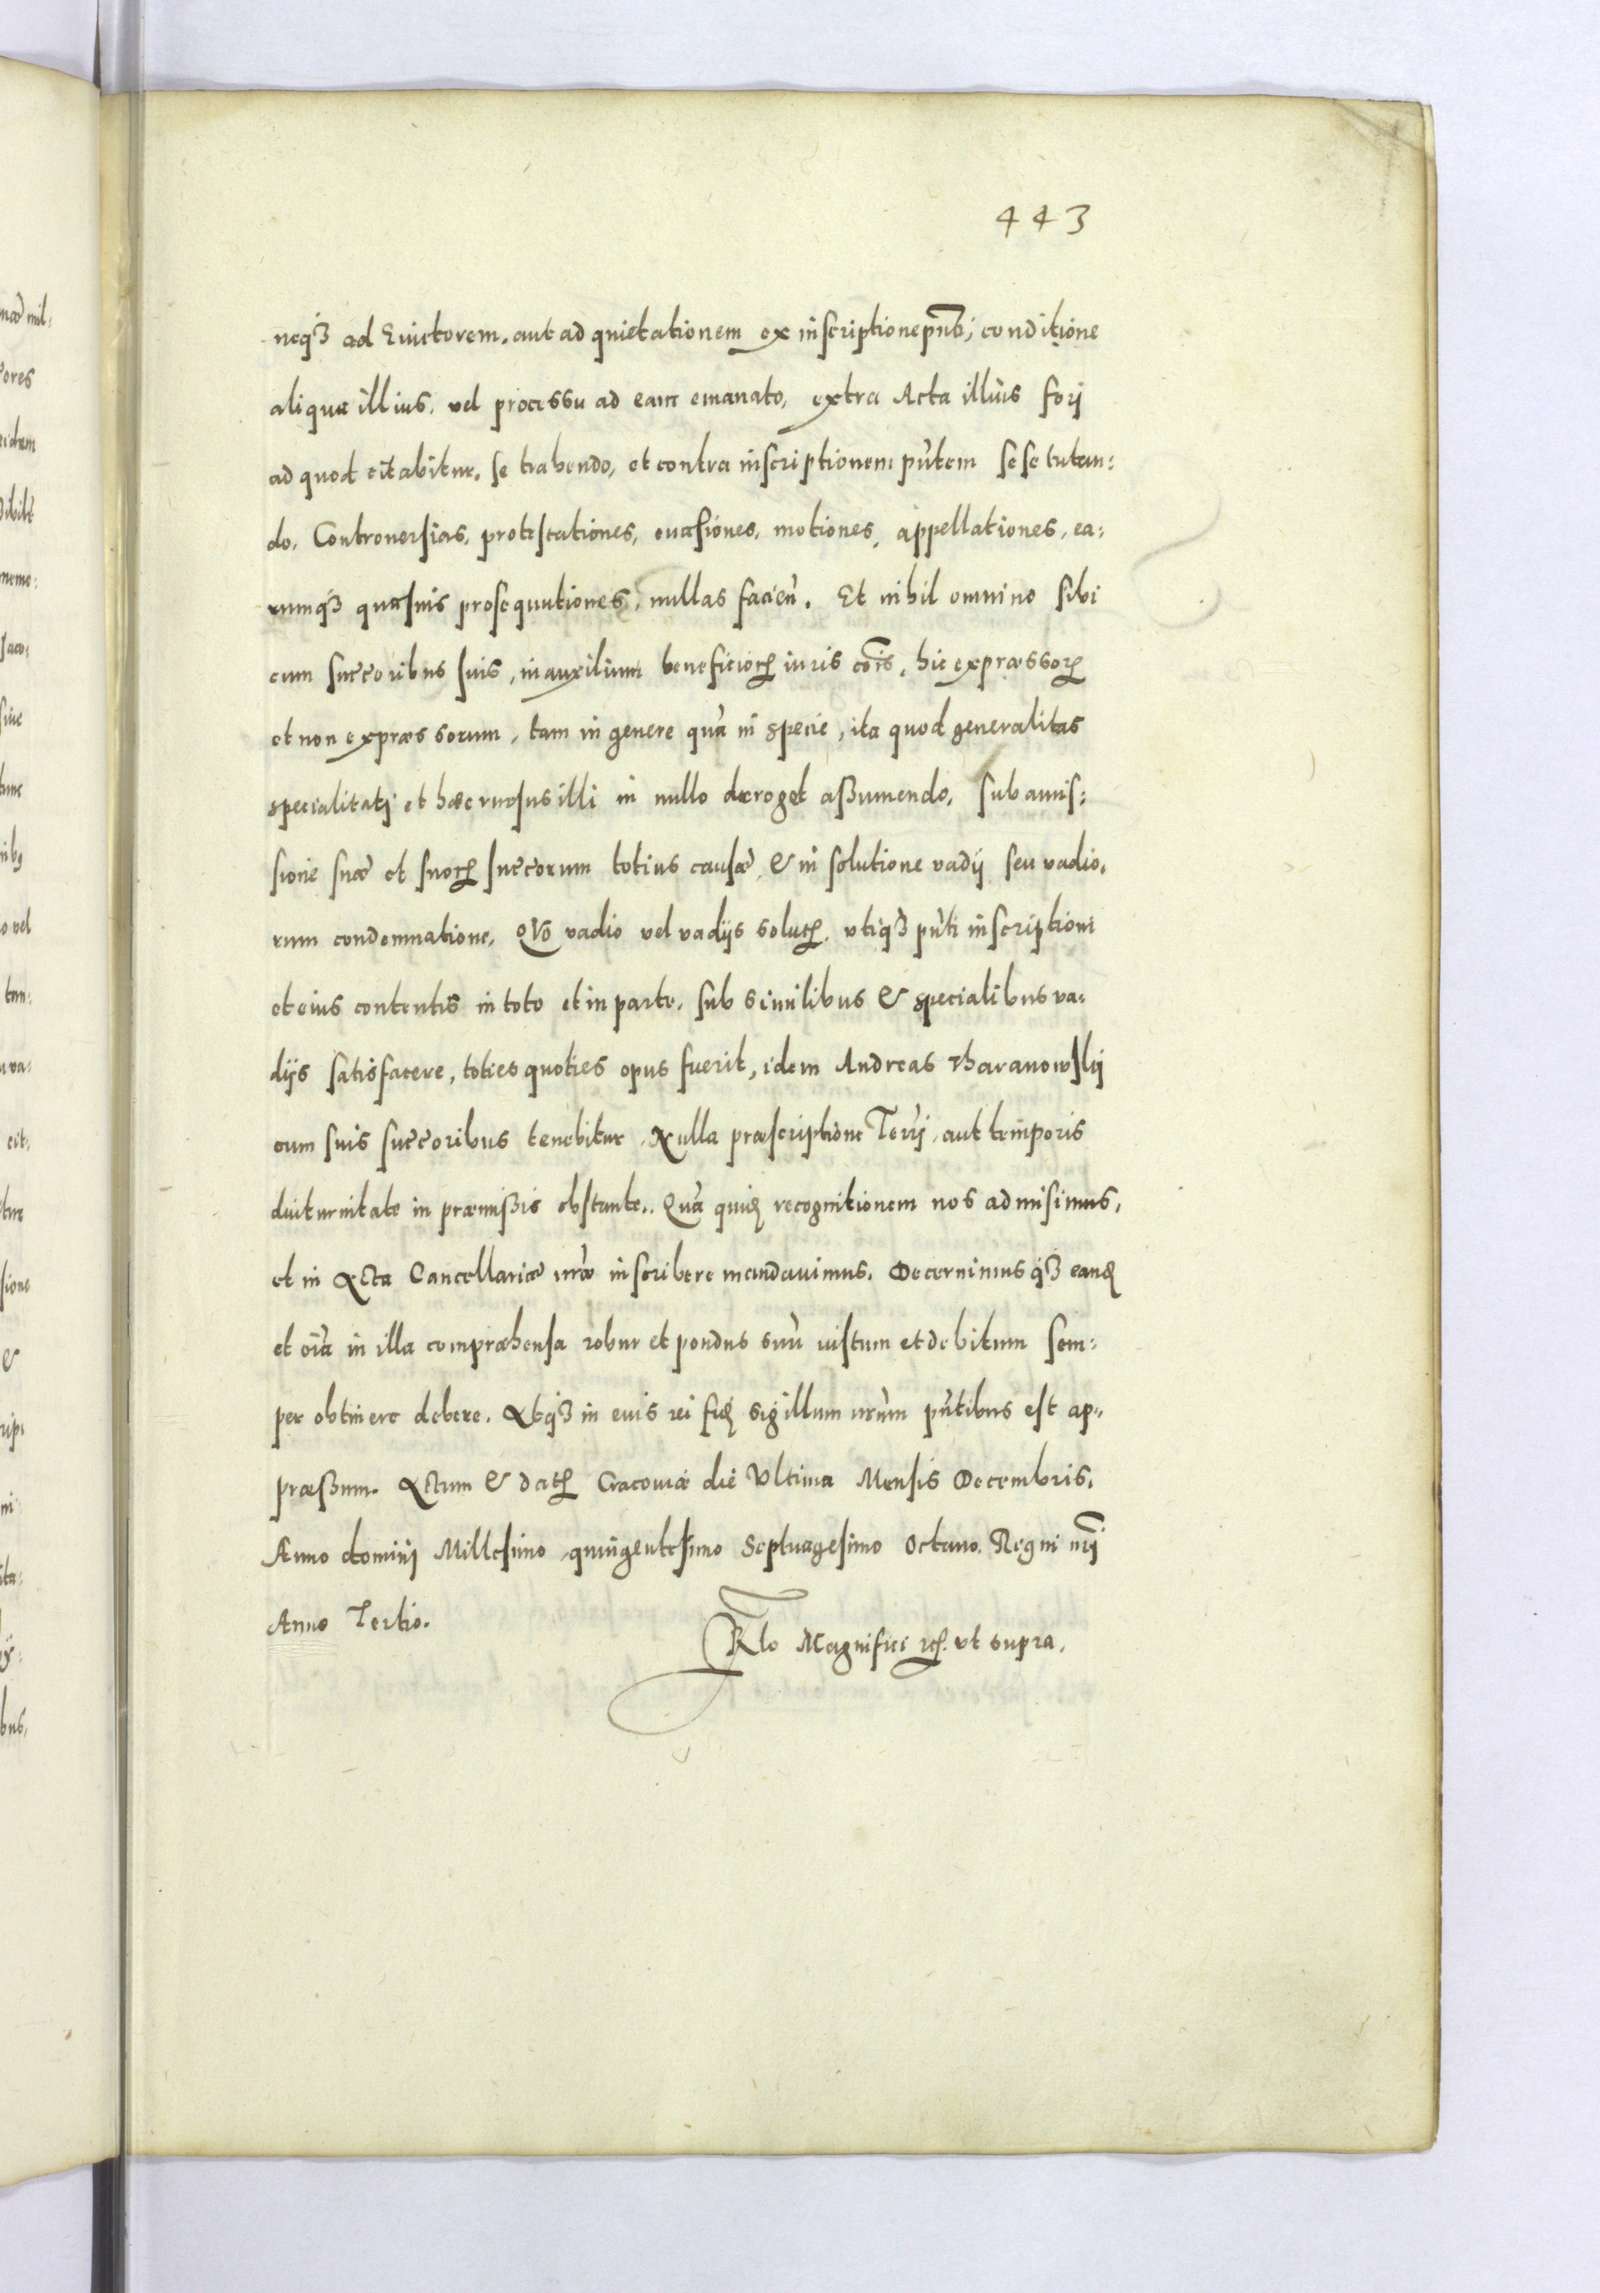 443
neqꝫ ad Euictorem, aut ad quietationem ex inscriptione pnti, conditione
aliqua illius, vel processu ad eam emanato, extra Acta illius fori
ad quod citabitur, se trahendo, et contra inscriptionem pñtem sese tutan:
do, Controuersias, protestationes, euasiones, motiones, appellationes, ea:
rumqꝫ quasuis prosequutiones, nullas facieñ. Et nihil omnino sibi
cum succoribus suis, in auxilium beneficioꝝ iuris cōis, hic expraessoꝝ
et non expraessorum, tam in genere quā in specie, ita quod generalitas
specialitati et haec rursus illi in nullo deroget aßumendo, sub amis:
sione suae et suoꝝ succorum totius causae, & in solutione vadij seu vadio,
rum condemnatione. Quo vadio vel vadijs soluꝝ, vtiqꝫ pñti inscriptioni
et eius contentis in toto et in parte, sub similibus & specialibus va:
dijs satisfacere, toties quoties opus fuerit, idem Andreas Tharanowskij
cum suis succoribus tenebitur, Nulla praescriptione Terrj, aut temporis
diuturnitate in praemißis obstante. Quā quidē recognitionem nos admisimus,
et in Acta Cancellariae nrae inscribere mandauimus. Decernimusqꝫ eandē
et oīa in illa compraehensa robur et pondus suū iustum et debitum sem:
per obtinere debere. Atqꝫ in euis rei fidē sigillum nrūm pñtibus est ap:
praeßum. Actum & datꝝ Cracouiae die Vltima Mensis Decembris,
Anno domini Millesimo quingentesimo Septuagesimo Octauo. Regni nri
Anno Tertio.
Rlo Magnifici etc. vt supra.